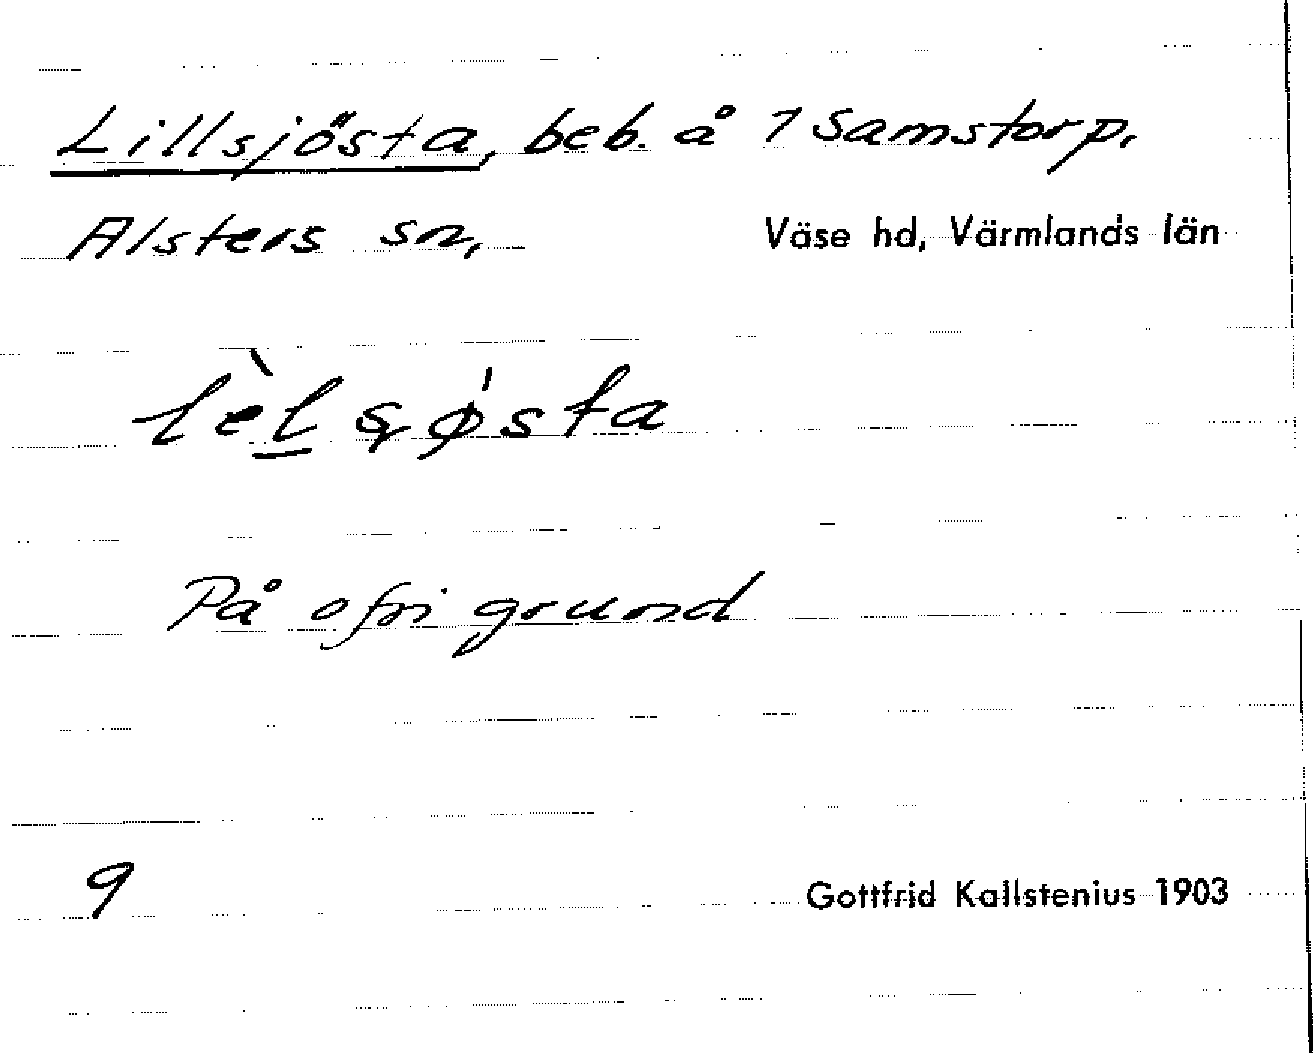 Lillsjösta, beb. å 1 Samstorp,
Alsters sn, Väse hd, Värmlands län
På ofri grund
9 Gottfrid Kallstenius 1903